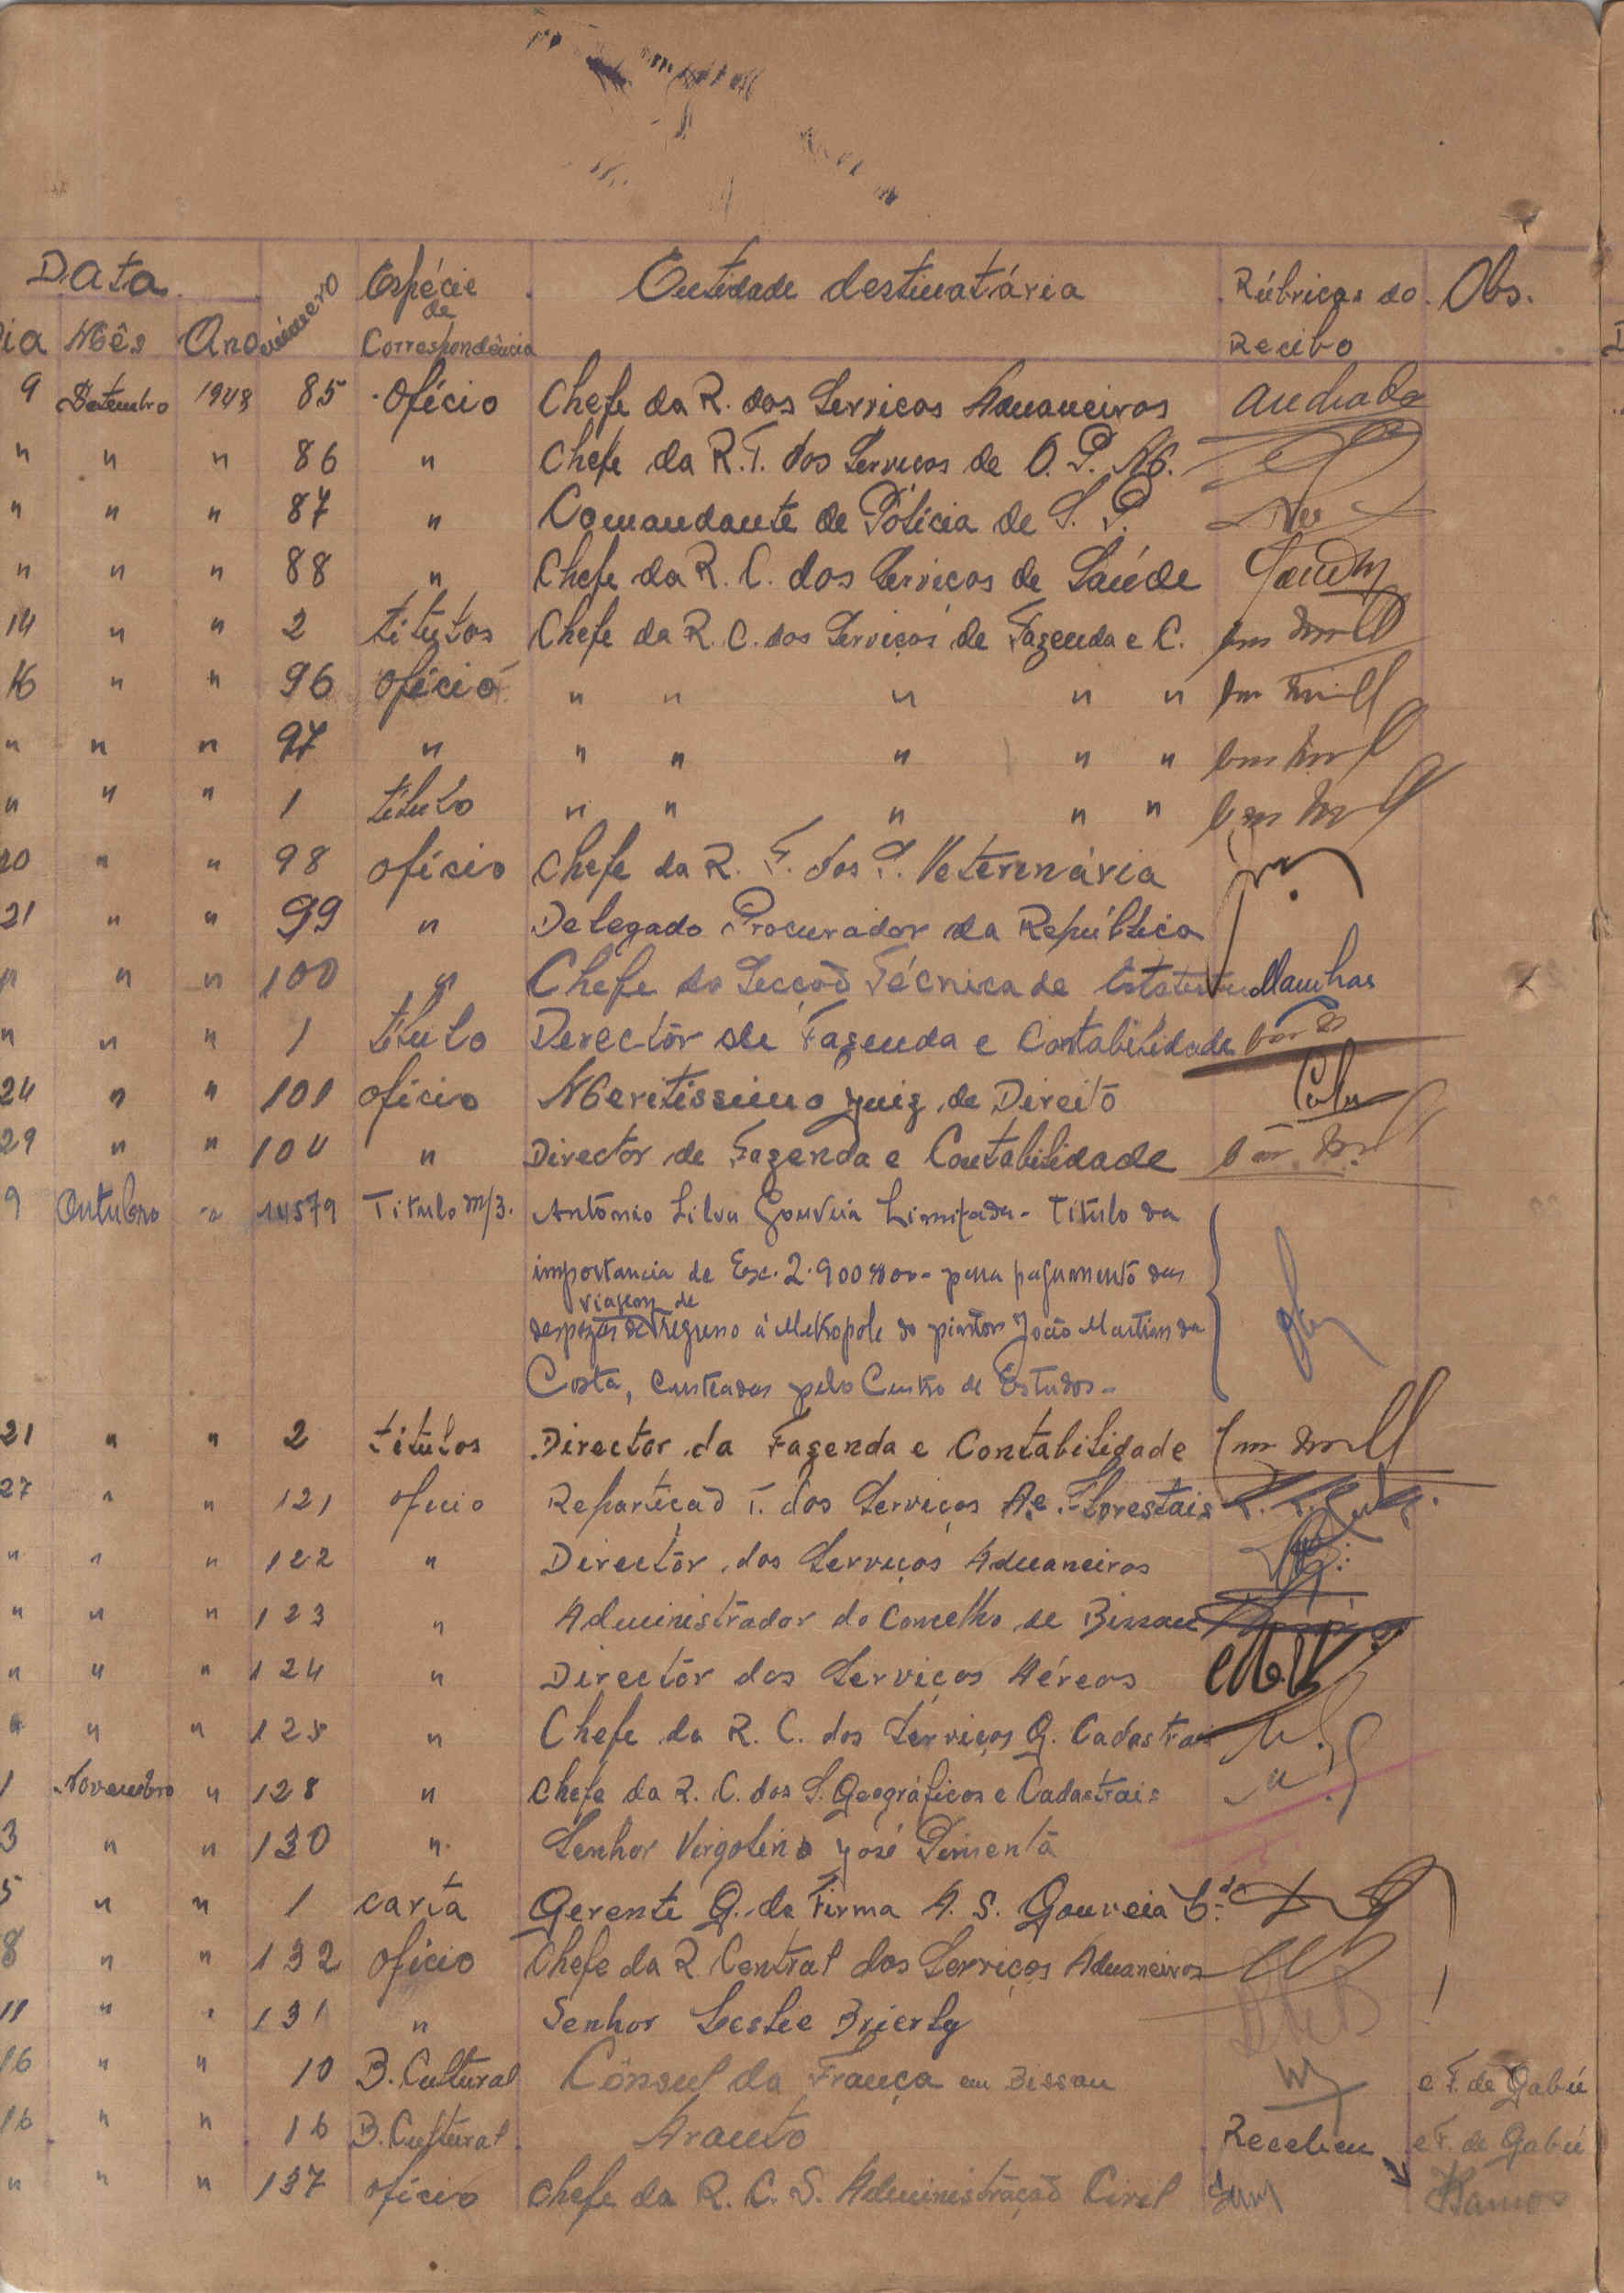 Data Número Espécie de Correspondência Entidade destinatária Rúbricas do Recibo Obs.
Dia Mês Ano
9 Setembro 1948 85 Ofício Chefe da R. dos Serviços Aduaneiros Andrade
" " " 86 " Chefe da R.T. dos Serviços de O. P. M.
" " " 87 " Comandante de Polícia de S. P.
" " " 88 " Chefe da R. C. dos Serviços de Saúde
14 " " 2 títulos Chefe da R. C. dos Serviços de Fazenda e C.
16 " " 96 Ofício " " " " "
" " " 97 " " " " " "
" " " 1 título " " " " "
20 " " 98 ofício Chefe da R. T. dos S. Veterenária
21 " " 99 " Delegado Procurador da República
" " " 100 " Chefe da Secção Técnica de
" " " 1 título Director de Fazenda e Contabilidade
24 " " 101 ofício Meritíssimo Juiz de Direito
29 " " 104 " Director de Fazenda e Contabilidade
9 Outubro " 14579 Titulo m/3. António Silva Gouveia Limitada - Titulo da
importancia de Esc. 2.900$00 - para pagamento das
viagem de
despezas de regresso á Metropole do pintor João Martins da
Costa, custeadas pelo Centro de Estudos -
21 " " 2 títulos Director da Fazenda e Contabilidade
27 " " 121 ofício Repartição T. dos Serviços A. e Florestais
" " " 122 " Director dos Serviços Aduaneiros
" " " 123 " Administrador do Concelho de Bissau
" " " 124 " Director dos Serviços Aéreos
" " " 125 " Chefe da R. C. dos Serviços G. Cadastrais
1 Novembro " 128 " Chefe da R. C. dos S. Geográficos e Cadastrais
3 " " 130 " Senhor Vergolino José Pimenta
5 " " 1 carta Gerente G. da Firma A. S. Gouveia L.da
8 " " 132 ofício Chefe da R. Central dos Serviços Aduaneiros
11 " " 131 " Senhor Leslie Brierly
16 " " 10 B. Cultural Cônsul da França em Bissau e F. de Gabú
16 " " 16 B. Cultural Arauto Recebeu e F. de Gabú
" " " 137 ofício Chefe da R. C. S. Administração Civil Ramos